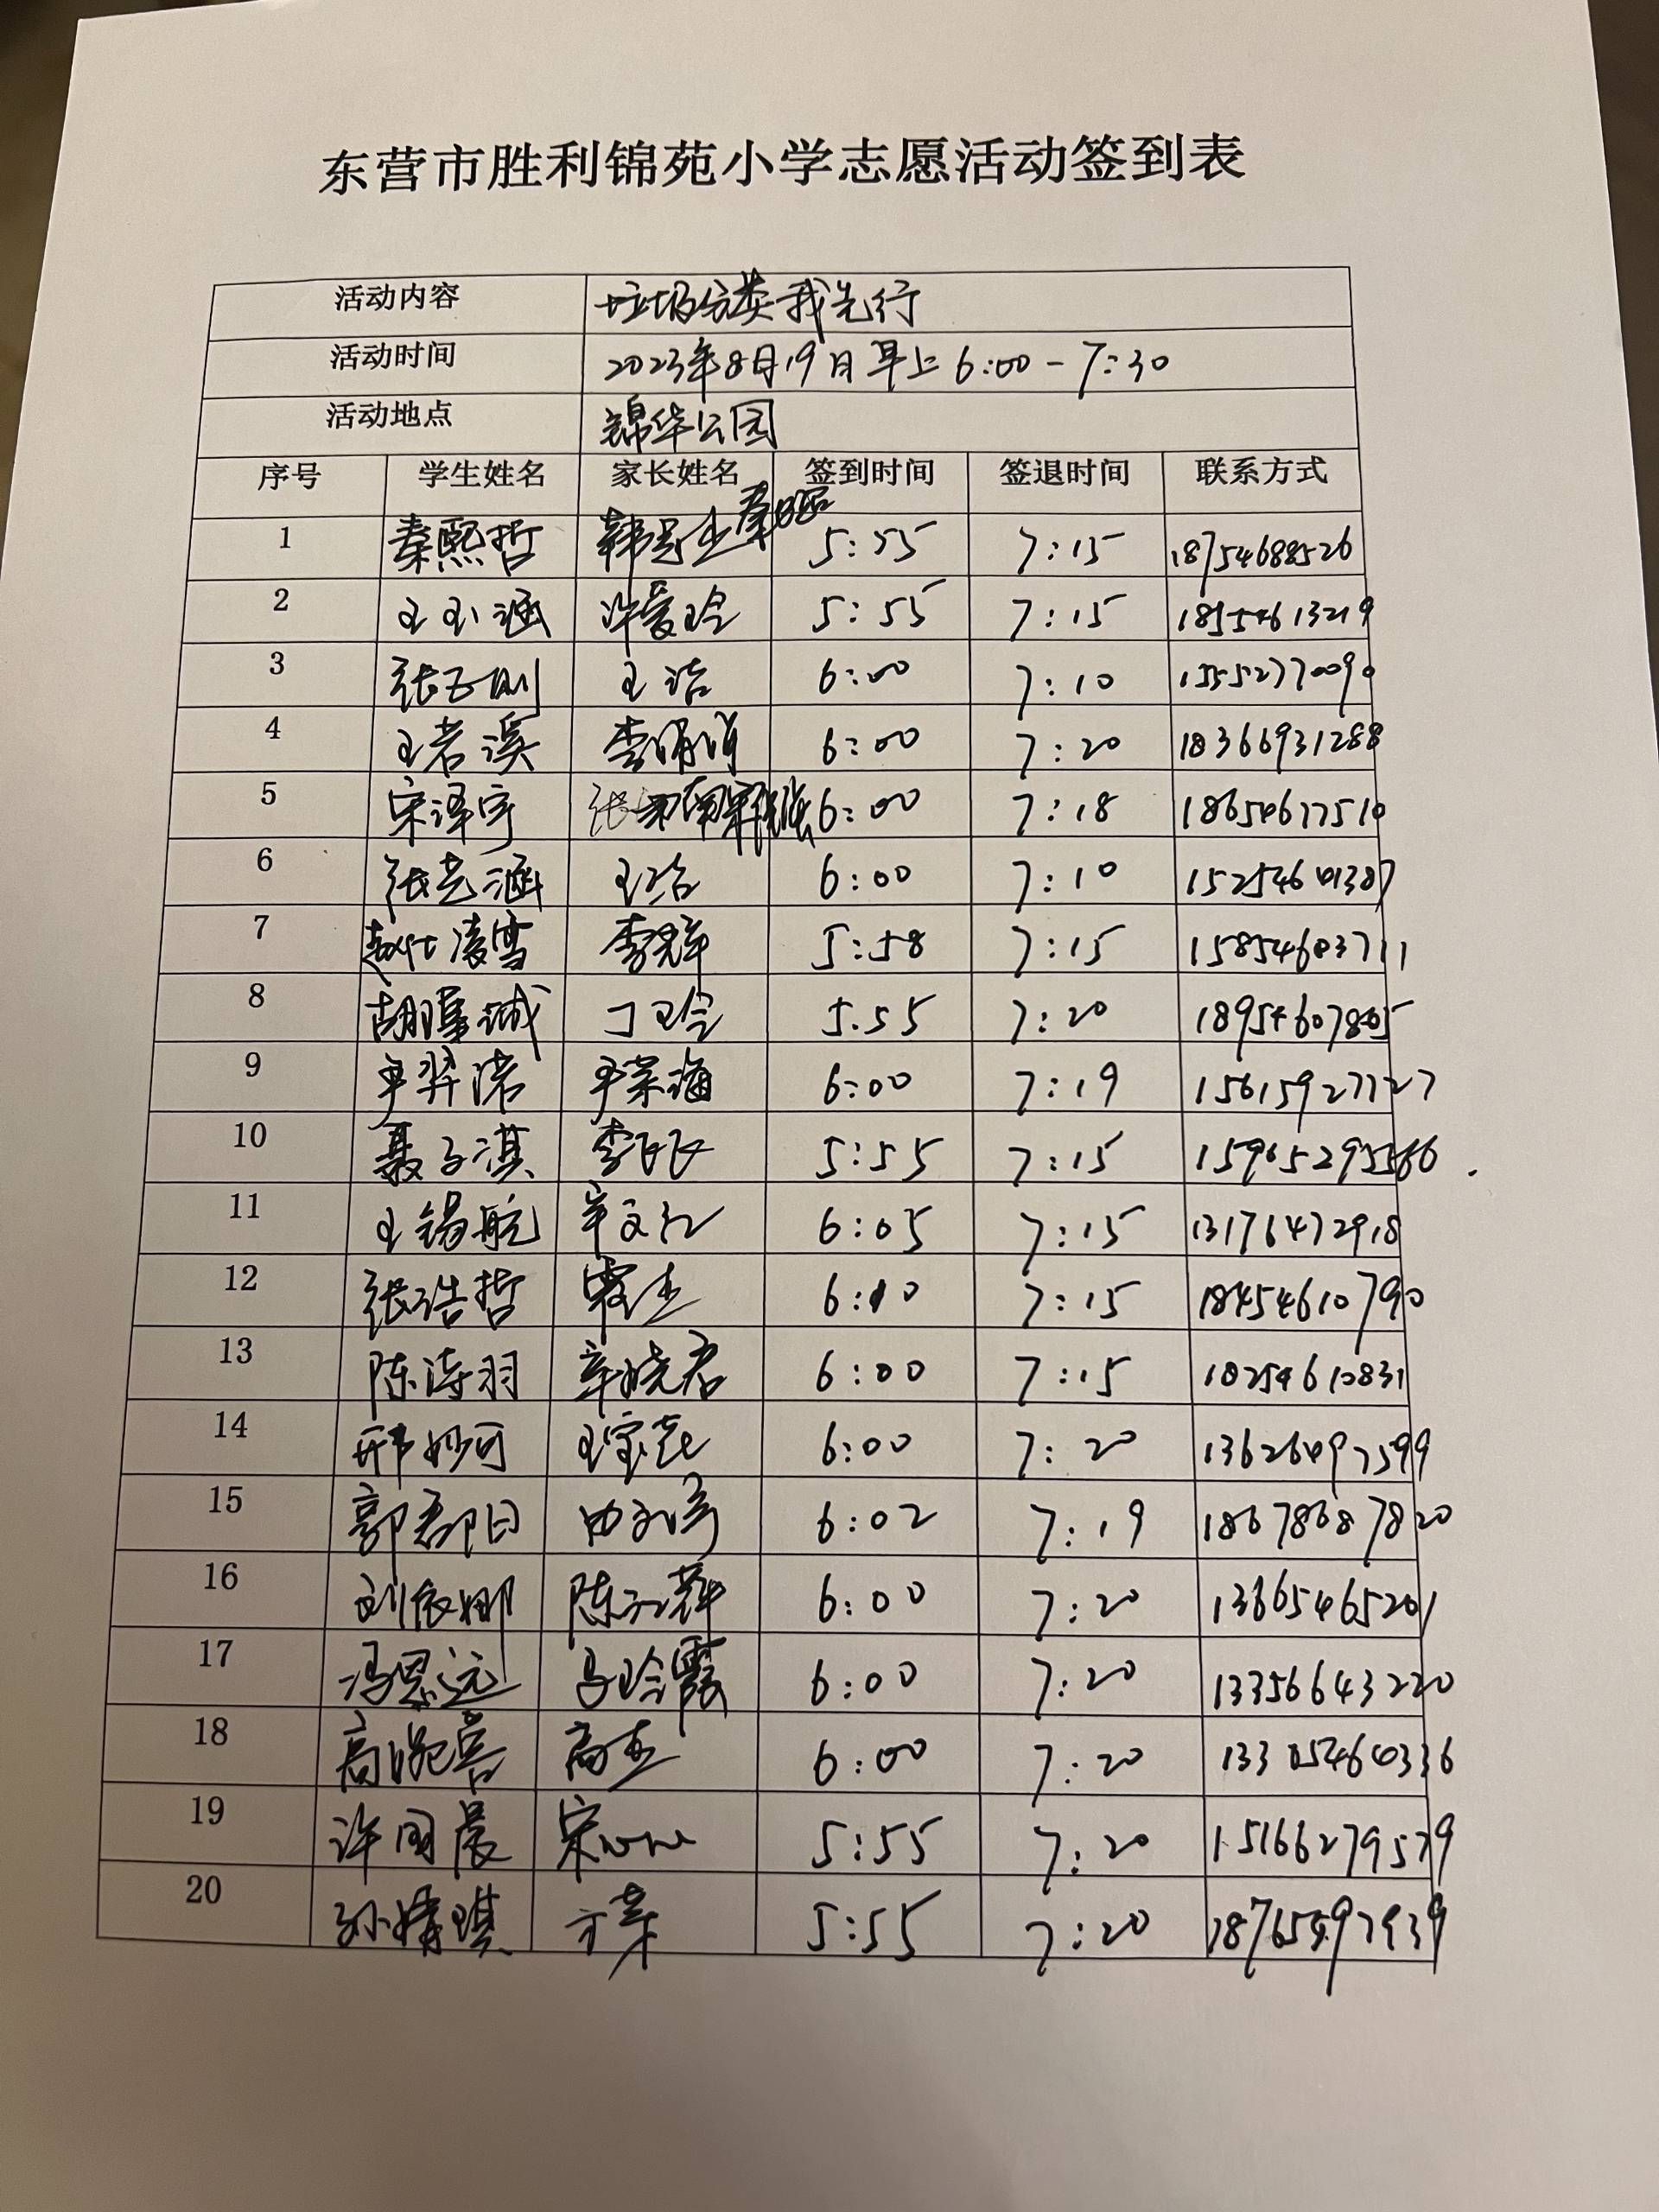 东营市胜利锦苑小学志愿活动签到表
活动内容 垃圾分类我先行
活动时间 2023年8月19日早上6:00-7:30
活动地点 锦华公园
序号 学生姓名 家长姓名 签到时间 签退时间 联系方式
1 秦熙哲 5:55 7:15 18754688526
2 王玉涵 许爱玲 5:55 7:15 18554613219
3 张子刚 王洁 6:00 7:10 15552770090
4 王若溪 李明明 6:00 7:20 18366931288
5 宋泽宇 6:00 7:18 18654677510
6 张艺涵 王洁 6:00 7:10 15254601387
7 赵仕凌雪 李翠 5:58 7:15 15854603711
8 胡瑾诚 丁玲 5:55 7:20
9 尹羿诺 尹荣海 6:00 7:19 15615927727
10 聂子淇 5:55 7:15
11 王锡航 6:05 7:15 13176472918
12 张浩哲 6:10 7:15 18454610790
13 陈涛羽 辛晓君 6:00 7:15 18254610831
14 邢妙可 6:00 7:20
15 郭君阳 6:02 7:19 18678687820
16 刘依娜 6:00 7:20 13665465201
17 冯思远 马玲霞 6:00 7:20 13356643220
18 高 6:00 7:20
19 许国晨 宋 5:55 7:20 15166279579
20 孙婧琪 5:55 7:20 18765497939